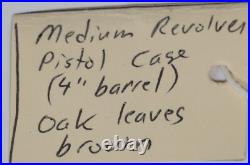 Medium Revolver
Pistol Case
(4" barrel)
Oak leaves
brown